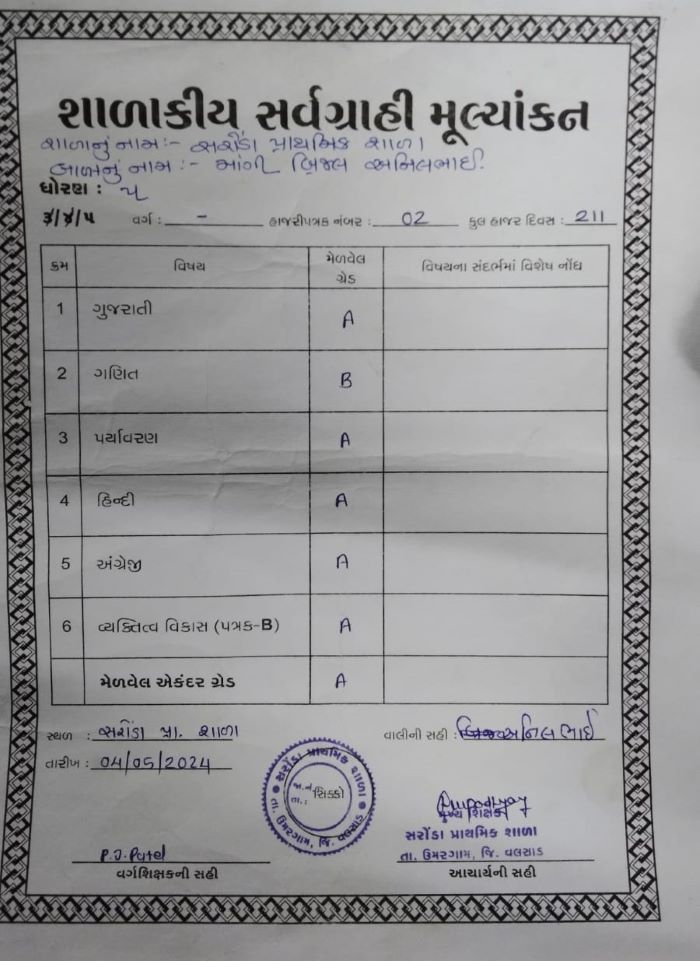 શાળાકીય સર્વગ્રાહી મૂલ્યાંકન
શાળાનું નામ :- સરોંડા પ્રાથમિક શાળા
બાળનું નામ :- માંગી બ્રિજલ અનિલભાઈ.
ધોરણ : ૫
૩/૪/૫ વર્ગ : - હાજરીપત્રક નંબર : 02 કુલ હાજર દિવસ : 211
ક્રમ વિષય મેળવેલ ગ્રેડ વિષયના સંદર્ભમાં વિશેષ નોંધ
1 ગુજરાતી A
2 ગણિત B
3 પર્યાવરણ A
4 હિન્દી A
5 અંગ્રેજી A
6 વ્યક્તિત્વ વિકાસ (પત્રક-B) A
મેળવેલ એકંદર ગ્રેડ A
સ્થળ : સરોંડા પ્રા. શાળા વાલીની સહી : અનિલભાઈ
તારીખ : 04/05/2024
સરોંડા પ્રાથમિક શાળા
જા.નં.
તા. :
સિક્કો
તા. ઉમરગામ, જિ. વલસાડ
મુખ્ય શિક્ષક
સરોંડા પ્રાથમિક શાળા
તા. ઉમરગામ, જિ. વલસાડ
P.J.Patel
વર્ગશિક્ષકની સહી આચાર્યની સહી